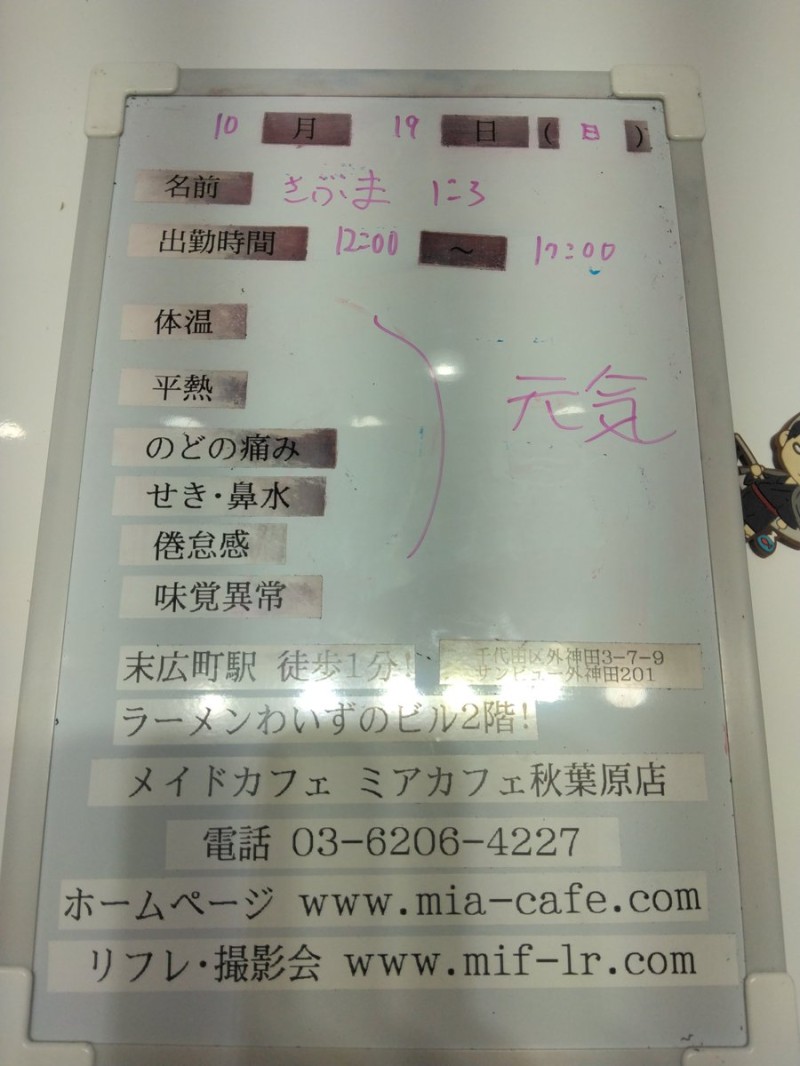 10 月 19 日 ( 日 )
名前 さぶま に3
出勤時間 12:00 ～ 17:00
体温
平熱
のどの痛み
せき・鼻水
倦怠感
味覚異常
元気
末広町駅 徒歩1分!
千代田区外神田3-7-9
サンビュー外神田201
ラーメンわいずのビル2階!
メイドカフェ ミアカフェ秋葉原店
電話 03-6206-4227
ホームページ www.mia-cafe.com
リフレ・撮影会 www.mif-lr.com